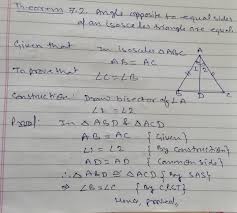 Theorem 7.2 Angle opposite to equal sides
of an isosceles triangle are equal
Given that In isosceles ΔABC
AB = AC
To prove that
∠C = ∠B
Construction: Draw bisector of ∠A
∠1 = ∠2
Proof: In Δ ABD & ΔACD
AB = AC {Given}
∠1 = ∠2 {By construction}
AD = AD {Common side}
∴ ΔABD ≅ ΔACD {By SAS}
⇒ ∠B = ∠C {By CPCT}
Hence proved
A
1 2
B D C